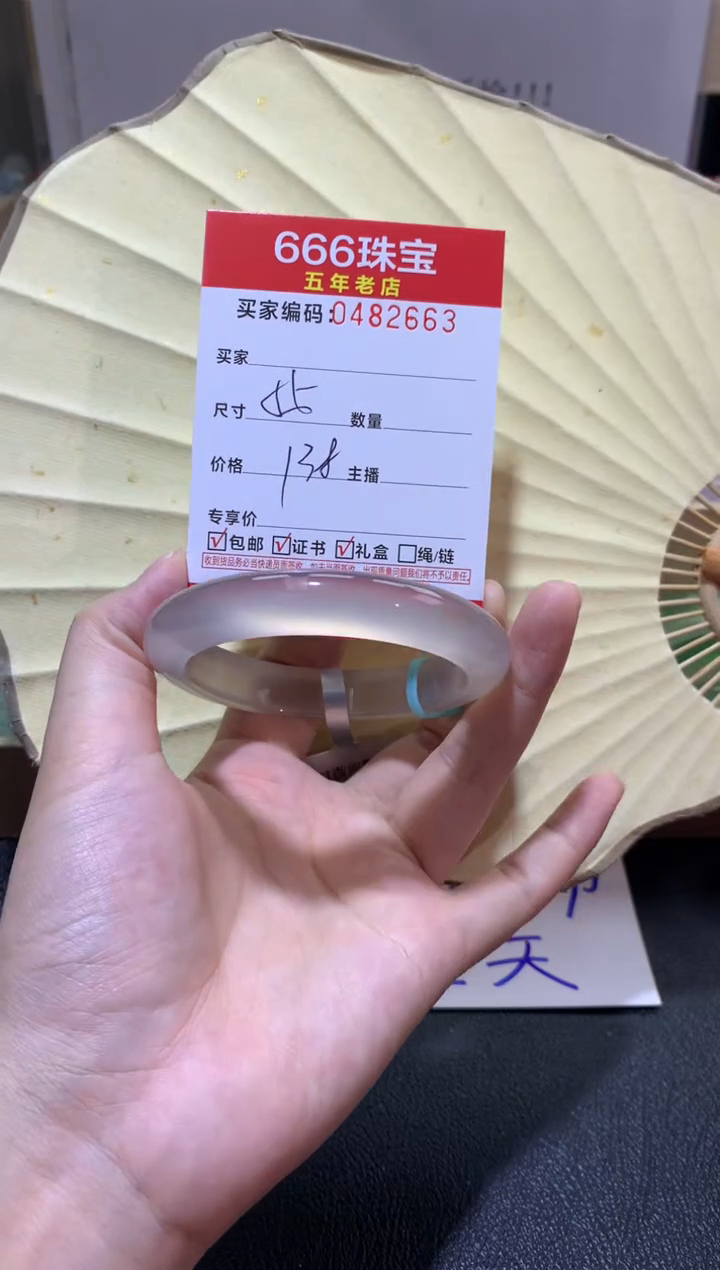 666珠宝
五年老店
买家编码:0482663
买家
尺寸 55 数量
价格 138 主播
专享价
☑包邮 ☑证书 ☑礼盒 ☐绳/链
收到货品务必当快递员面签收，如未当面签收，出现质量问题我们将不予以责任。
天